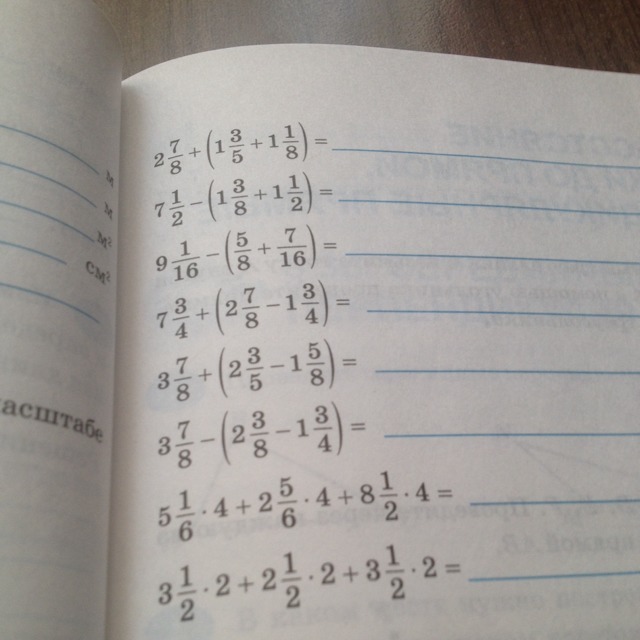 м
м
м²
см²
масштабе
2 7/8 + (1 3/5 + 1 1/8) =
7 1/2 − (1 3/8 + 1 1/2) =
9 1/16 − (5/8 + 7/16) =
7 3/4 + (2 7/8 − 1 3/4) =
3 7/8 + (2 3/5 − 1 5/8) =
3 7/8 − (2 3/8 − 1 3/4) =
5 1/6 · 4 + 2 5/6 · 4 + 8 1/2 · 4 =
3 1/2 · 2 + 2 1/2 · 2 + 3 1/2 · 2 =